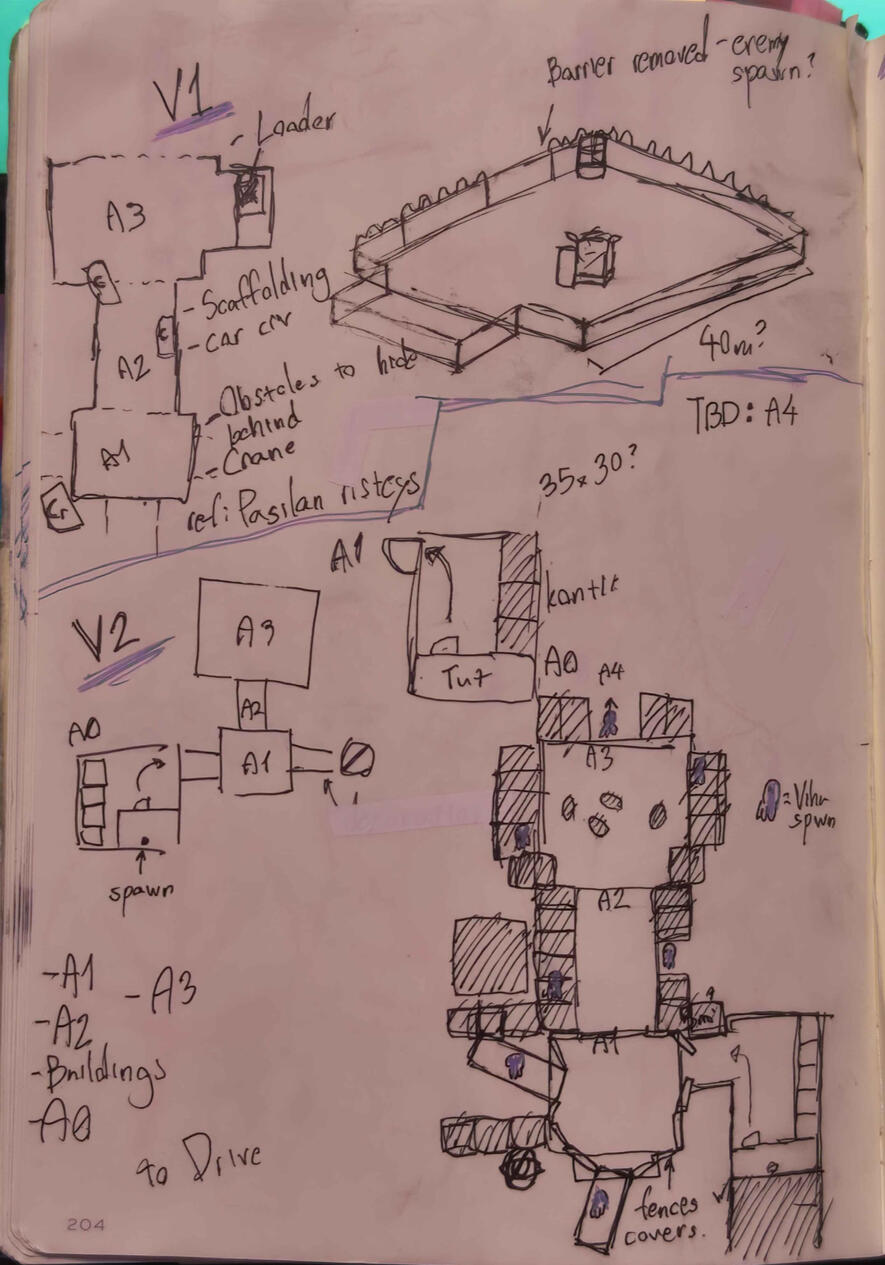 V1
- Loader
A3
Barrier removed - enemy
spawn?
- Scaffolding
- car civ
A2
40m?
- Obstcles to hide
behind
A1
- Crane
Cr
ref: Pasilan risteys
TBD: A4
35x30?
A1
V2
A3
A2
A0
A1
spawn
Tu7
A0
A4
A3
= Vihu
spwn
A2
A1
- A1
- A3
- A2
- Buildings
- A0
to Drive
fences
covers.
204